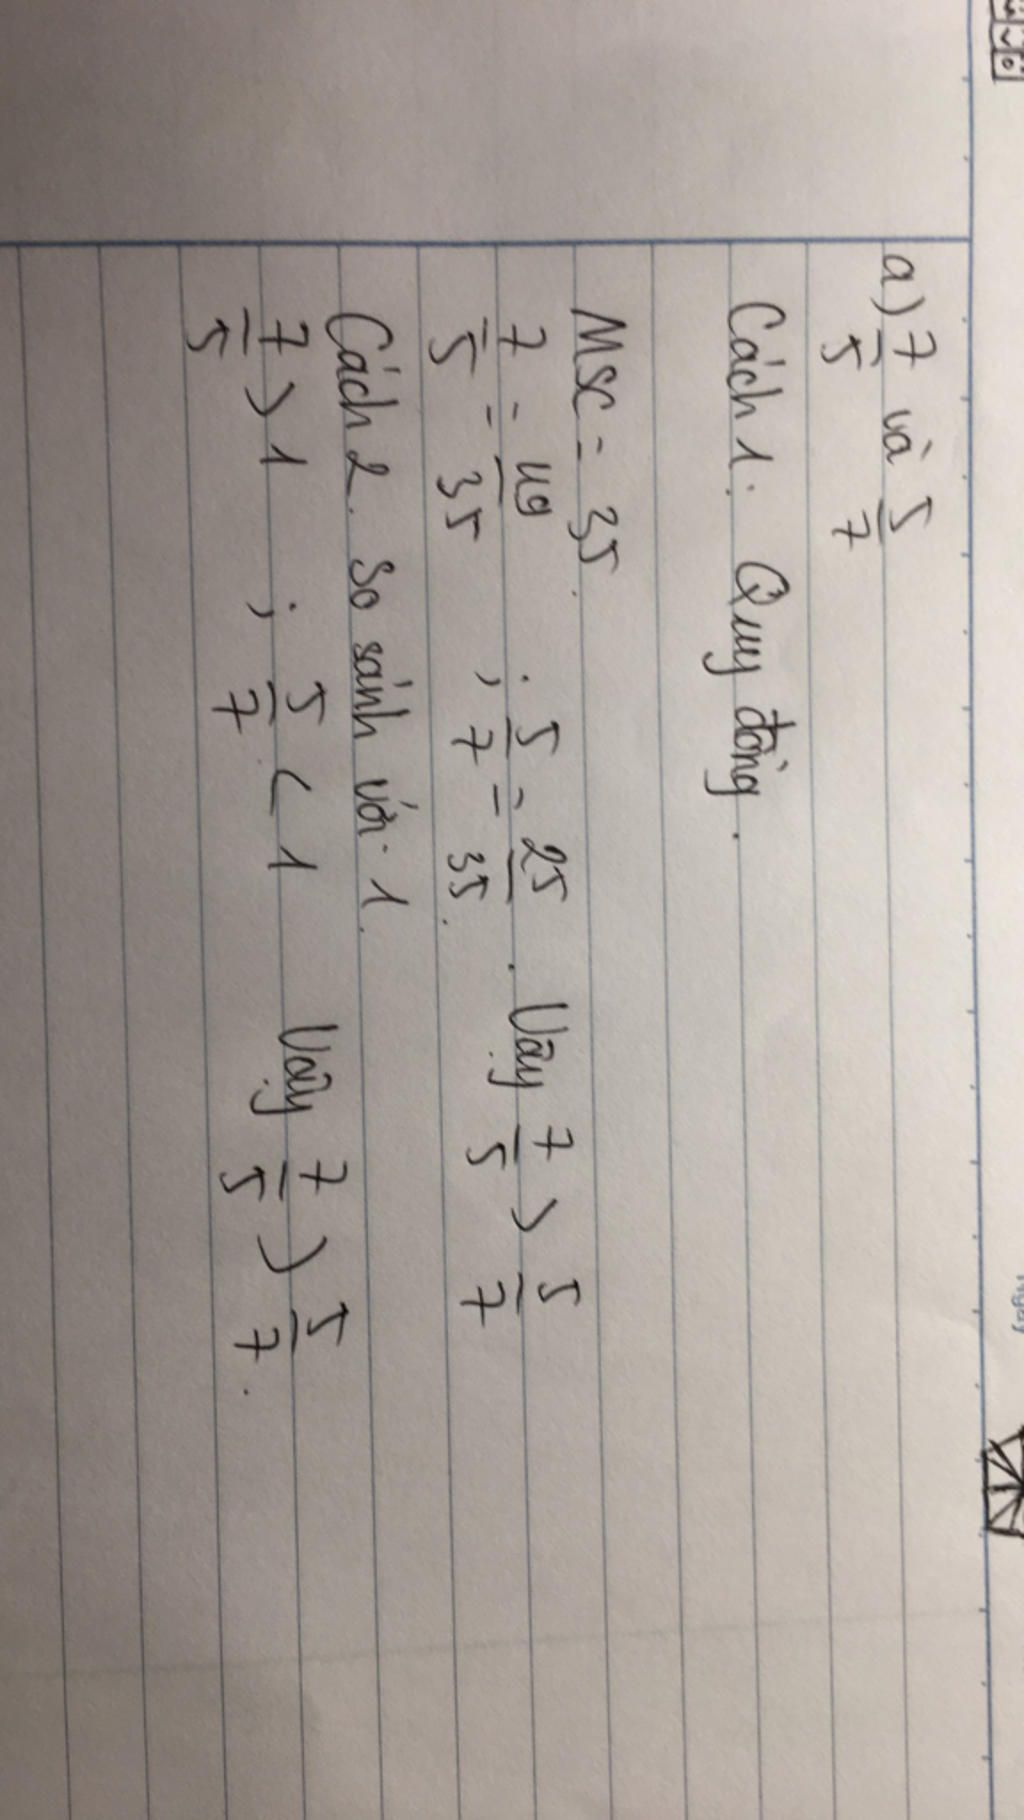 a) 7/5 và 5/7
Cách 1: Quy đồng.
MSC = 35.
7/5 = 49/35 ; 5/7 = 25/35. Vậy 7/5 > 5/7
Cách 2. So sánh với 1.
7/5 > 1 ; 5/7 < 1 Vậy 7/5 > 5/7.